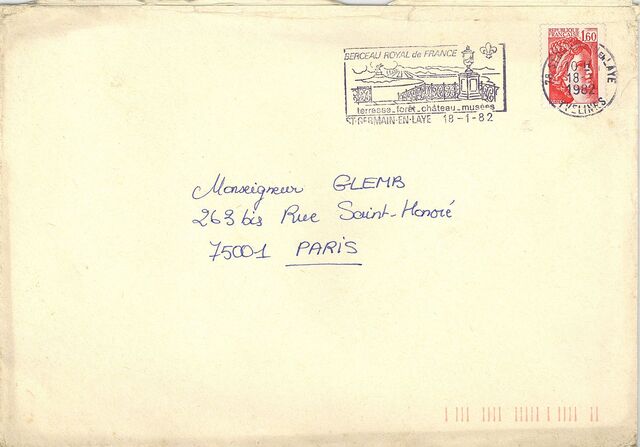 BERCEAU ROYAL de FRANCE
terrasse_forêt_château_musées
ST-GERMAIN-EN-LAYE 18-1-82
REPUBLIQUE
FRANÇAISE 1,60
78
EN-LAYE
18-1
1982
YVELINES
Monseigneur GLEMB
263 bis Rue Saint-Honoré
75001 PARIS